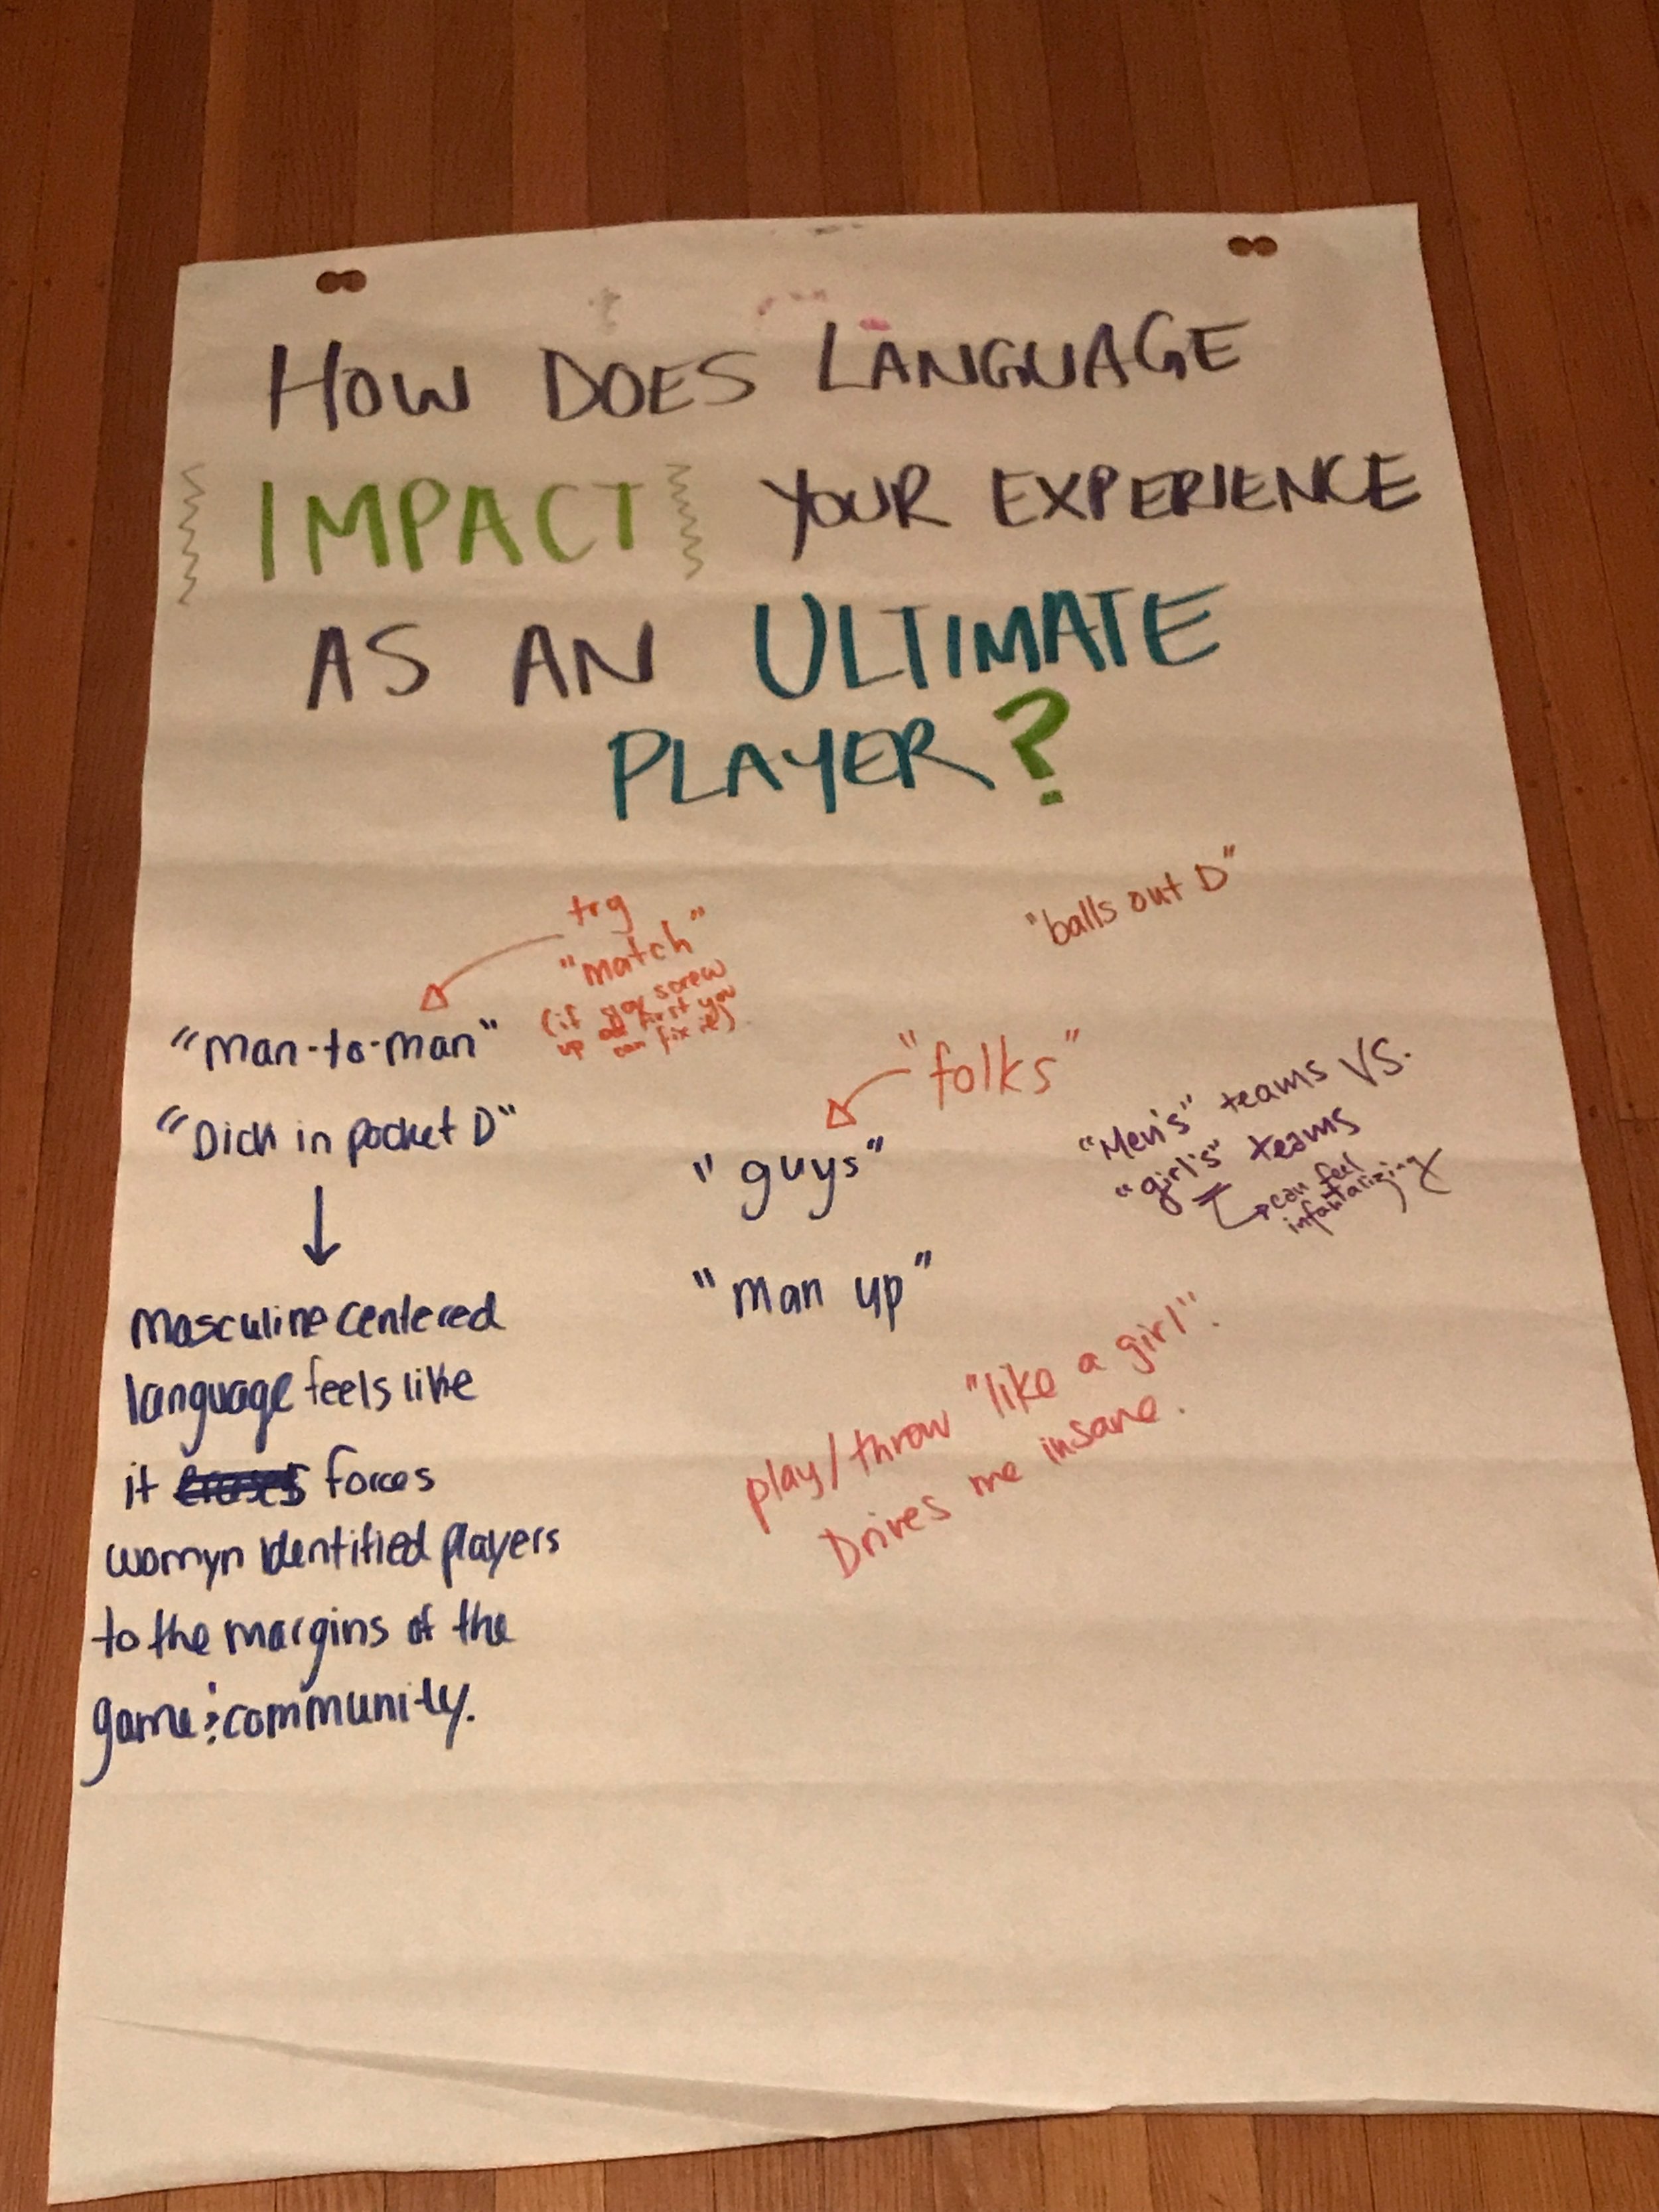 HOW DOES LANGUAGE
IMPACT YOUR EXPERIENCE
AS AN ULTIMATE
PLAYER?
"balls out D"
try
"match"
(if you screw
up at first you
can fix it)
"man-to-man"
"Dick in pocket D"
masculine centered
language feels like
it erases forces
womyn identified players
to the margins of the
game & community.
"folks"
"guys"
"man up"
"Men's" teams VS.
"girl's" teams
can feel
infantalizing
play/throw "like a girl".
Drives me insane.